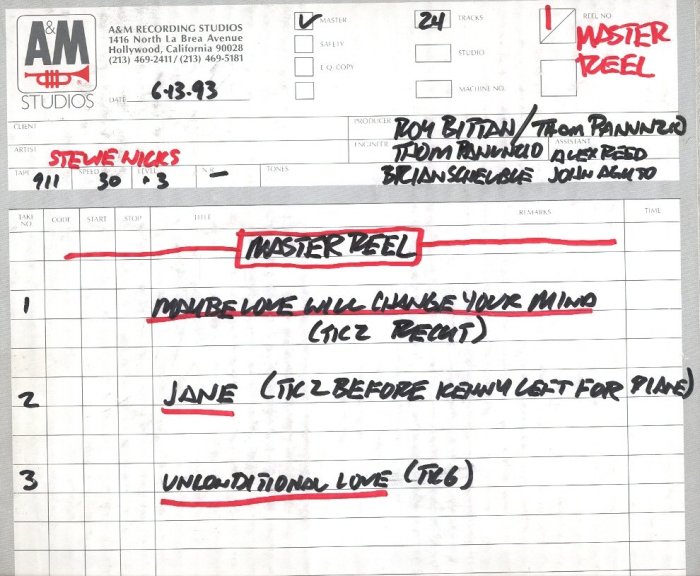 A&M
STUDIOS
A&M RECORDING STUDIOS
1416 North La Brea Avenue
Hollywood, California 90028
(213) 469-2411/(213) 469-5181
DATE 6·13·93
✓ MASTER
SAFETY
E.Q. COPY
24 TRACKS
STUDIO
MACHINE NO.
1 REEL NO
MASTER
REEL
CLIENT
PRODUCER ROY BITTAN/THOM PANUNZIO
ARTIST STEVIE NICKS
ENGINEER THOM PANUNZIO
BRIAN SCHEUBLE
ASSISTANT ALEX REED
JOHN AGUTO
TAPE 911 SPEED 30 LEVEL +3 N.R. — TONES
TAKE NO. CODE START STOP TITLE REMARKS TIME
MASTER REEL
1 MAYBE LOVE WILL CHANGE YOUR MIND
(TK 2 RECUT)
2 JANE (TK 2 BEFORE KENNY LEFT FOR PLANE)
3 UNCONDITIONAL LOVE (TK6)